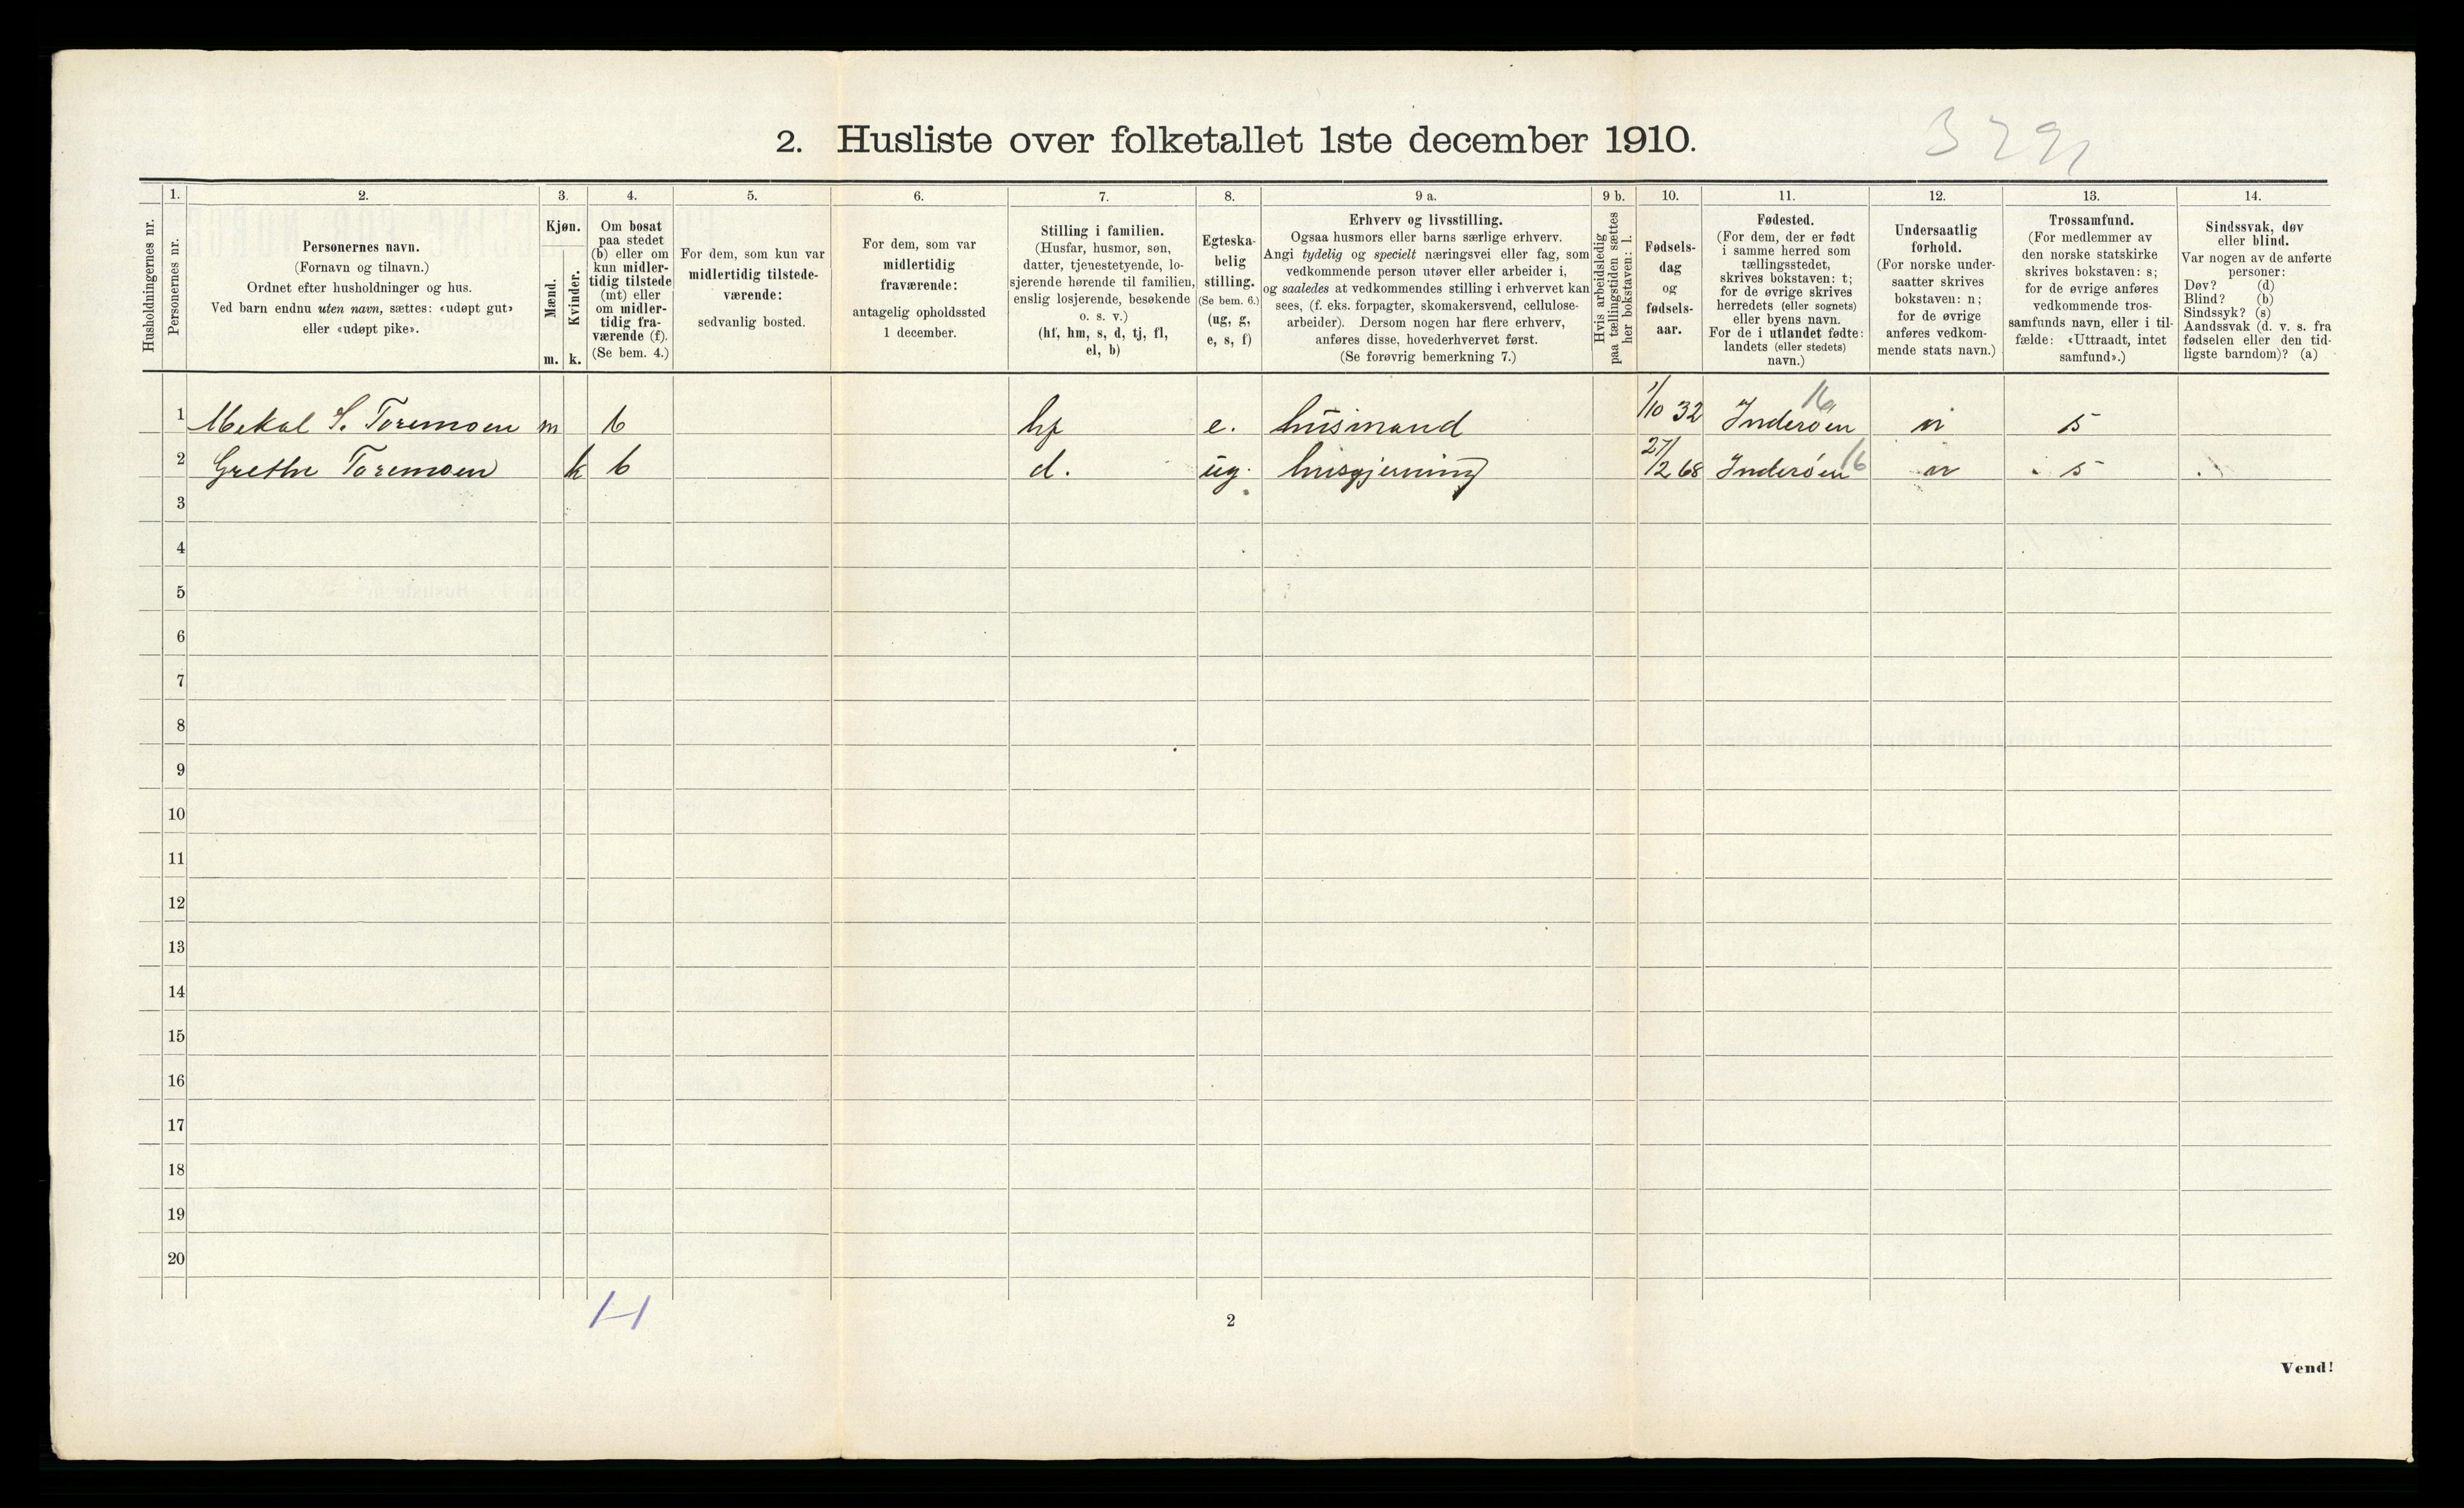 2. Husliste over folketallet 1ste december 1910.
Husholdningernes nr.
1.
Personernes nr.
2.
Personernes navn.
(Fornavn og tilnavn.)
Ordnet efter husholdninger og hus.
Ved barn endnu uten navn, sættes: «udøpt gut»
eller «udøpt pike».
3.
Kjøn.
Mænd.
Kvinder.
m. k.
4.
Om bosat
paa stedet
(b) eller om
kun midler-
tidig tilstede
(mt) eller
om midler-
tidig fra-
værende (f).
(Se bem. 4.)
5.
For dem, som kun var
midlertidig tilstede-
værende:
sedvanlig bosted.
6.
For dem, som var
midlertidig
fraværende:
antagelig opholdssted
1 december.
7.
Stilling i familien.
(Husfar, husmor, søn,
datter, tjenestetyende, lo-
sjerende hørende til familien,
enslig losjerende, besøkende
o. s. v.)
(hf, hm, s, d, tj, fl,
el, b)
8.
Egteska-
belig
stilling.
(Se bem. 6.)
(ug, g,
e, s, f)
9 a.
Erhverv og livsstilling.
Ogsaa husmors eller barns særlige erhverv.
Angi tydelig og specielt næringsvei eller fag, som
vedkommende person utøver eller arbeider i,
og saaledes at vedkommendes stilling i erhvervet kan
sees, (f. eks. forpagter, skomakersvend, cellulose-
arbeider). Dersom nogen har flere erhverv,
anføres disse, hovederhvervet først.
(Se forøvrig bemerkning 7.)
9 b.
Hvis arbeidsledig
paa tællingstiden sættes
her bokstaven: l.
10.
Fødsels-
dag
og
fødsels-
aar.
11.
Fødested.
(For dem, der er født
i samme herred som
tællingsstedet,
skrives bokstaven: t;
for de øvrige skrives
herredets (eller sognets)
eller byens navn.
For de i utlandet fødte:
landets (eller stedets)
navn.)
12.
Undersaatlig
forhold.
(For norske under-
saatter skrives
bokstaven: n;
for de øvrige
anføres vedkom-
mende stats navn.)
13.
Trossamfund.
(For medlemmer av
den norske statskirke
skrives bokstaven: s;
for de øvrige anføres
vedkommende tros-
samfunds navn, eller i til-
fælde: «Uttraadt, intet
samfund».)
14.
Sindssvak, døv
eller blind.
Var nogen av de anførte
personer:
Døv? (d)
Blind? (b)
Sindssyk? (s)
Aandssvak (d. v. s. fra
fødselen eller den tid-
ligste barndom)? (a)
1 Mekal S. Toremoen m b hf e. husmand 1/10 32 Inderøen 16 n s
2 Grethe Toremoen k b d. ug. husgjerning 27/2 68 Inderøen 16 n s
3
4
5
6
7
8
9
10
11
12
13
14
15
16
17
18
19
20
2
Vend!